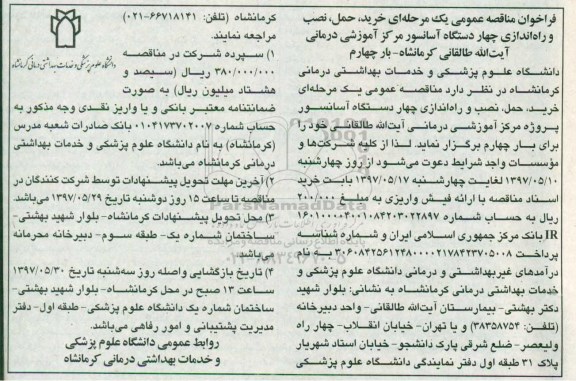 فراخوان مناقصه عمومی یک مرحله‌ای خرید، حمل، نصب
و راه‌اندازی چهار دستگاه آسانسور مرکز آموزشی درمانی
آیت‌الله طالقانی کرمانشاه- بار چهارم
دانشگاه علوم پزشکی و خدمات بهداشتی درمانی
کرمانشاه در نظر دارد مناقصه عمومی یک مرحله‌ای
خرید، حمل، نصب و راه‌اندازی چهار دستگاه آسانسور
پروژه مرکز آموزشی درمانی آیت‌الله طالقانی خود را
برای بار چهارم برگزار نماید. لذا از کلیه شرکت‌ها و
مؤسسات واجد شرایط دعوت می‌شود از روز چهارشنبه
۱۳۹۷/۰۵/۱۰ لغایت چهارشنبه ۱۳۹۷/۰۵/۱۷ بابت خرید
اسناد مناقصه با ارائه فیش واریزی به مبلغ
ریال به حساب شماره
IR بانک مرکز جمهوری اسلامی ایران و شماره شناسه
پرداخت به نام
درآمدهای غیربهداشتی و درمانی دانشگاه علوم پزشکی و
خدمات بهداشتی درمانی کرمانشاه به نشانی: بلوار شهید
دکتر بهشتی- بیمارستان آیت‌الله طالقانی- واحد دبیرخانه
(تلفن: ۳۸۳۵۸۷۵۴) و یا تهران- خیابان انقلاب- چهار راه
ولیعصر- ضلع شرقی پارک دانشجو- خیابان استاد شهریار
پلاک ۳۱ طبقه اول دفتر نمایندگی دانشگاه علوم پزشکی
کرمانشاه (تلفن: ۶۶۷۱۸۱۴۱-۰۲۱)
مراجعه نمایند.
۱) سپرده شرکت در مناقصه
۳۸۰/۰۰۰/۰۰۰ ریال (سیصد و
هشتاد میلیون ریال) به صورت
ضمانتنامه معتبر بانکی و یا واریز نقدی وجه مذکور به
حساب شماره ۰۱۰۴۱۷۳۷۰۲۰۰۷ بانک صادرات شعبه مدرس
(کرمانشاه) به نام دانشگاه علوم پزشکی و خدمات بهداشتی
درمانی کرمانشاه می‌باشد.
۲) آخرین مهلت تحویل پیشنهادات توسط شرکت کنندگان در
مناقصه تا ساعت ۱۵ روز دوشنبه تاریخ ۱۳۹۷/۰۵/۲۹ می‌باشد.
۳) محل تحویل پیشنهادات کرمانشاه- بلوار شهید بهشتی-
ساختمان شماره یک- طبقه سوم- دبیرخانه محرمانه
می‌باشد.
۴) تاریخ بازگشایی واصله روز سه‌شنبه تاریخ ۱۳۹۷/۰۵/۳۰
ساعت ۱۳ صبح در محل کرمانشاه- بلوار شهید بهشتی-
ساختمان شماره یک دانشگاه علوم پزشکی- طبقه اول- دفتر
مدیریت پشتیبانی و امور رفاهی می‌باشد.
روابط عمومی دانشگاه علوم پزشکی
و خدمات بهداشتی درمانی کرمانشاه
دانشگاه علوم پزشکی و خدمات بهداشتی درمانی کرمانشاه
ParsNamadData